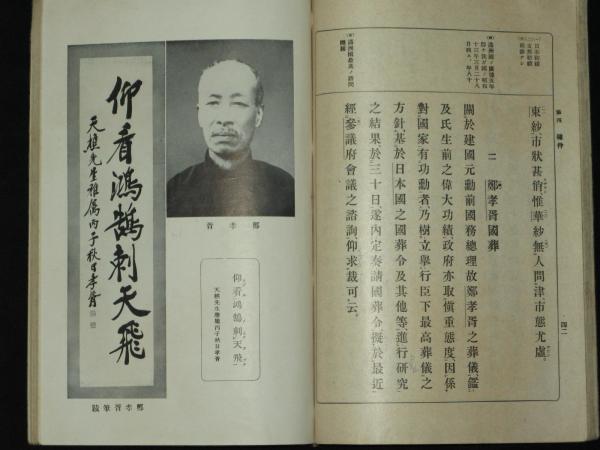 四二
雜件
東紗市狀甚俏、惟華紗無人問津、市態尤虛。
二 鄭孝胥國葬
關於建國元勳前國務總理故鄭孝胥之葬儀、鑑
及氏生前之偉大功績、政府亦取愼重態度、因係
對國家有功勳者、乃樹立舉行臣下最高葬儀之
方針、基於日本國之國葬令及其他等、進行研究
之結果、於三十日、遂內定奏請國葬令、擬於最近
經參議府會議之諮詢、仰求裁可云。
鄭孝胥
仰看鴻鵠刺天飛
天樵先生雅屬丙子秋日孝胥
仰看鴻鵠刺天飛
天樵先生雅屬丙子秋日孝胥
鄭孝胥筆蹟